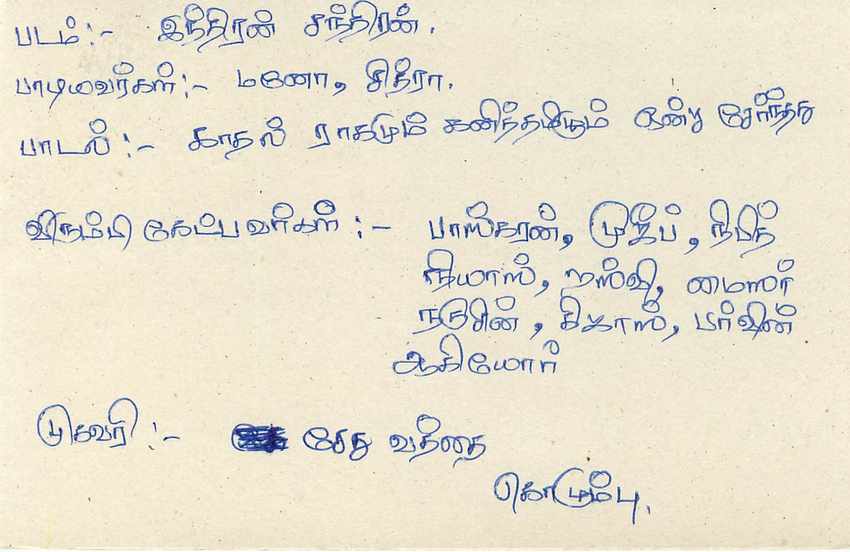 படம்:- இந்திரன் சந்திரன்.
பாடியவர்கள்:- மனோ, சித்ரா.
பாடல்:- காதல் ராகமும் கனிந்தமிடும் ஒன்று சேர்ந்தது
விரும்பி கேட்பவர்கள்:- பாஸ்கரன், முஜீப்,
நியாஸ், றஸ்வி,
நஜுசின், பர்வின்
ஆகியோர்
முகவரி:- சேது வத்தை
கொழும்பு.